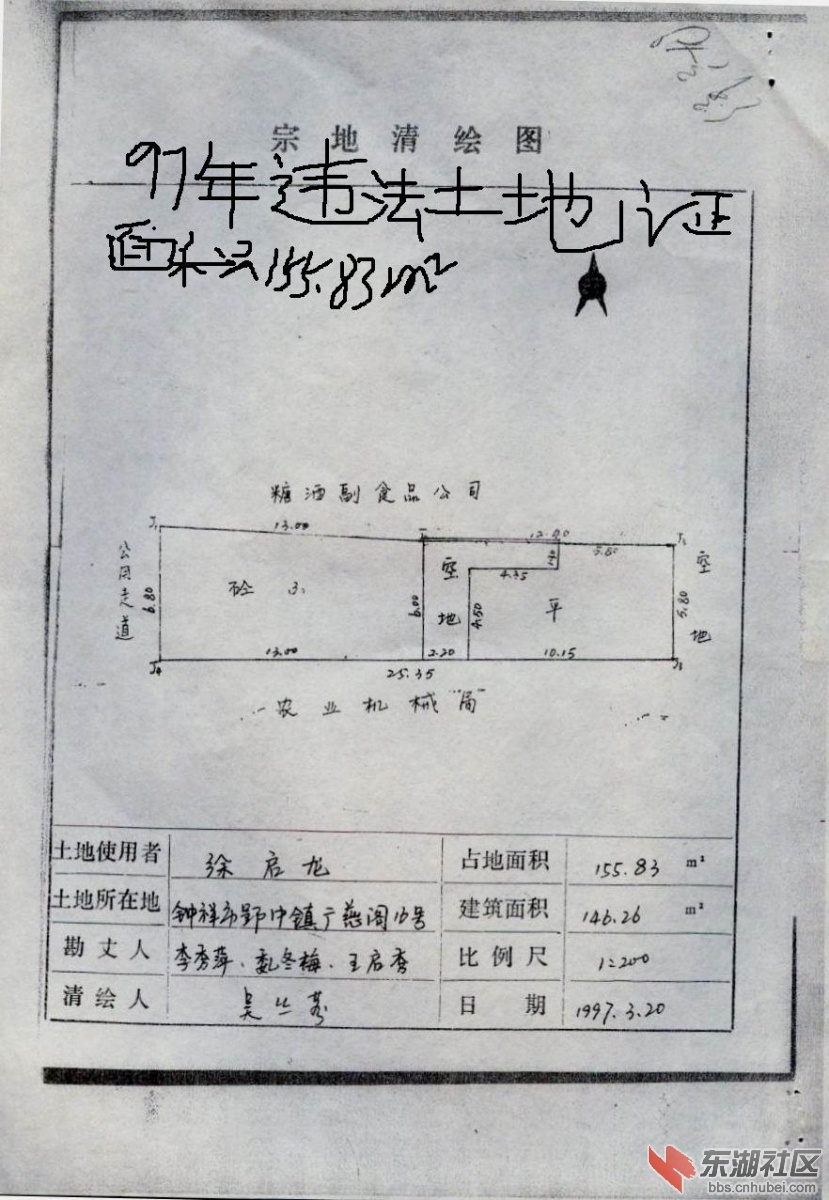 宗地清绘图
97年违法土地证
面积只155.83m²
糖酒副食品公司
J1 13.00 12.00 5.80 J2
公用走道 6.80 砼 3 6.00 空地 4.35 4.50 平 5.80 空地
J4 13.00 2.20 10.15 J3
25.35
农业机械局
土地使用者 徐启龙 占地面积 155.83 m²
土地所在地 钟祥市郢中镇广慈阁16号 建筑面积 146.26 m²
勘丈人 李秀萍、甄冬梅、王启秀 比例尺 1:200
清绘人 吴丛 日期 1997.3.20
东湖社区
bbs.cnhubei.com